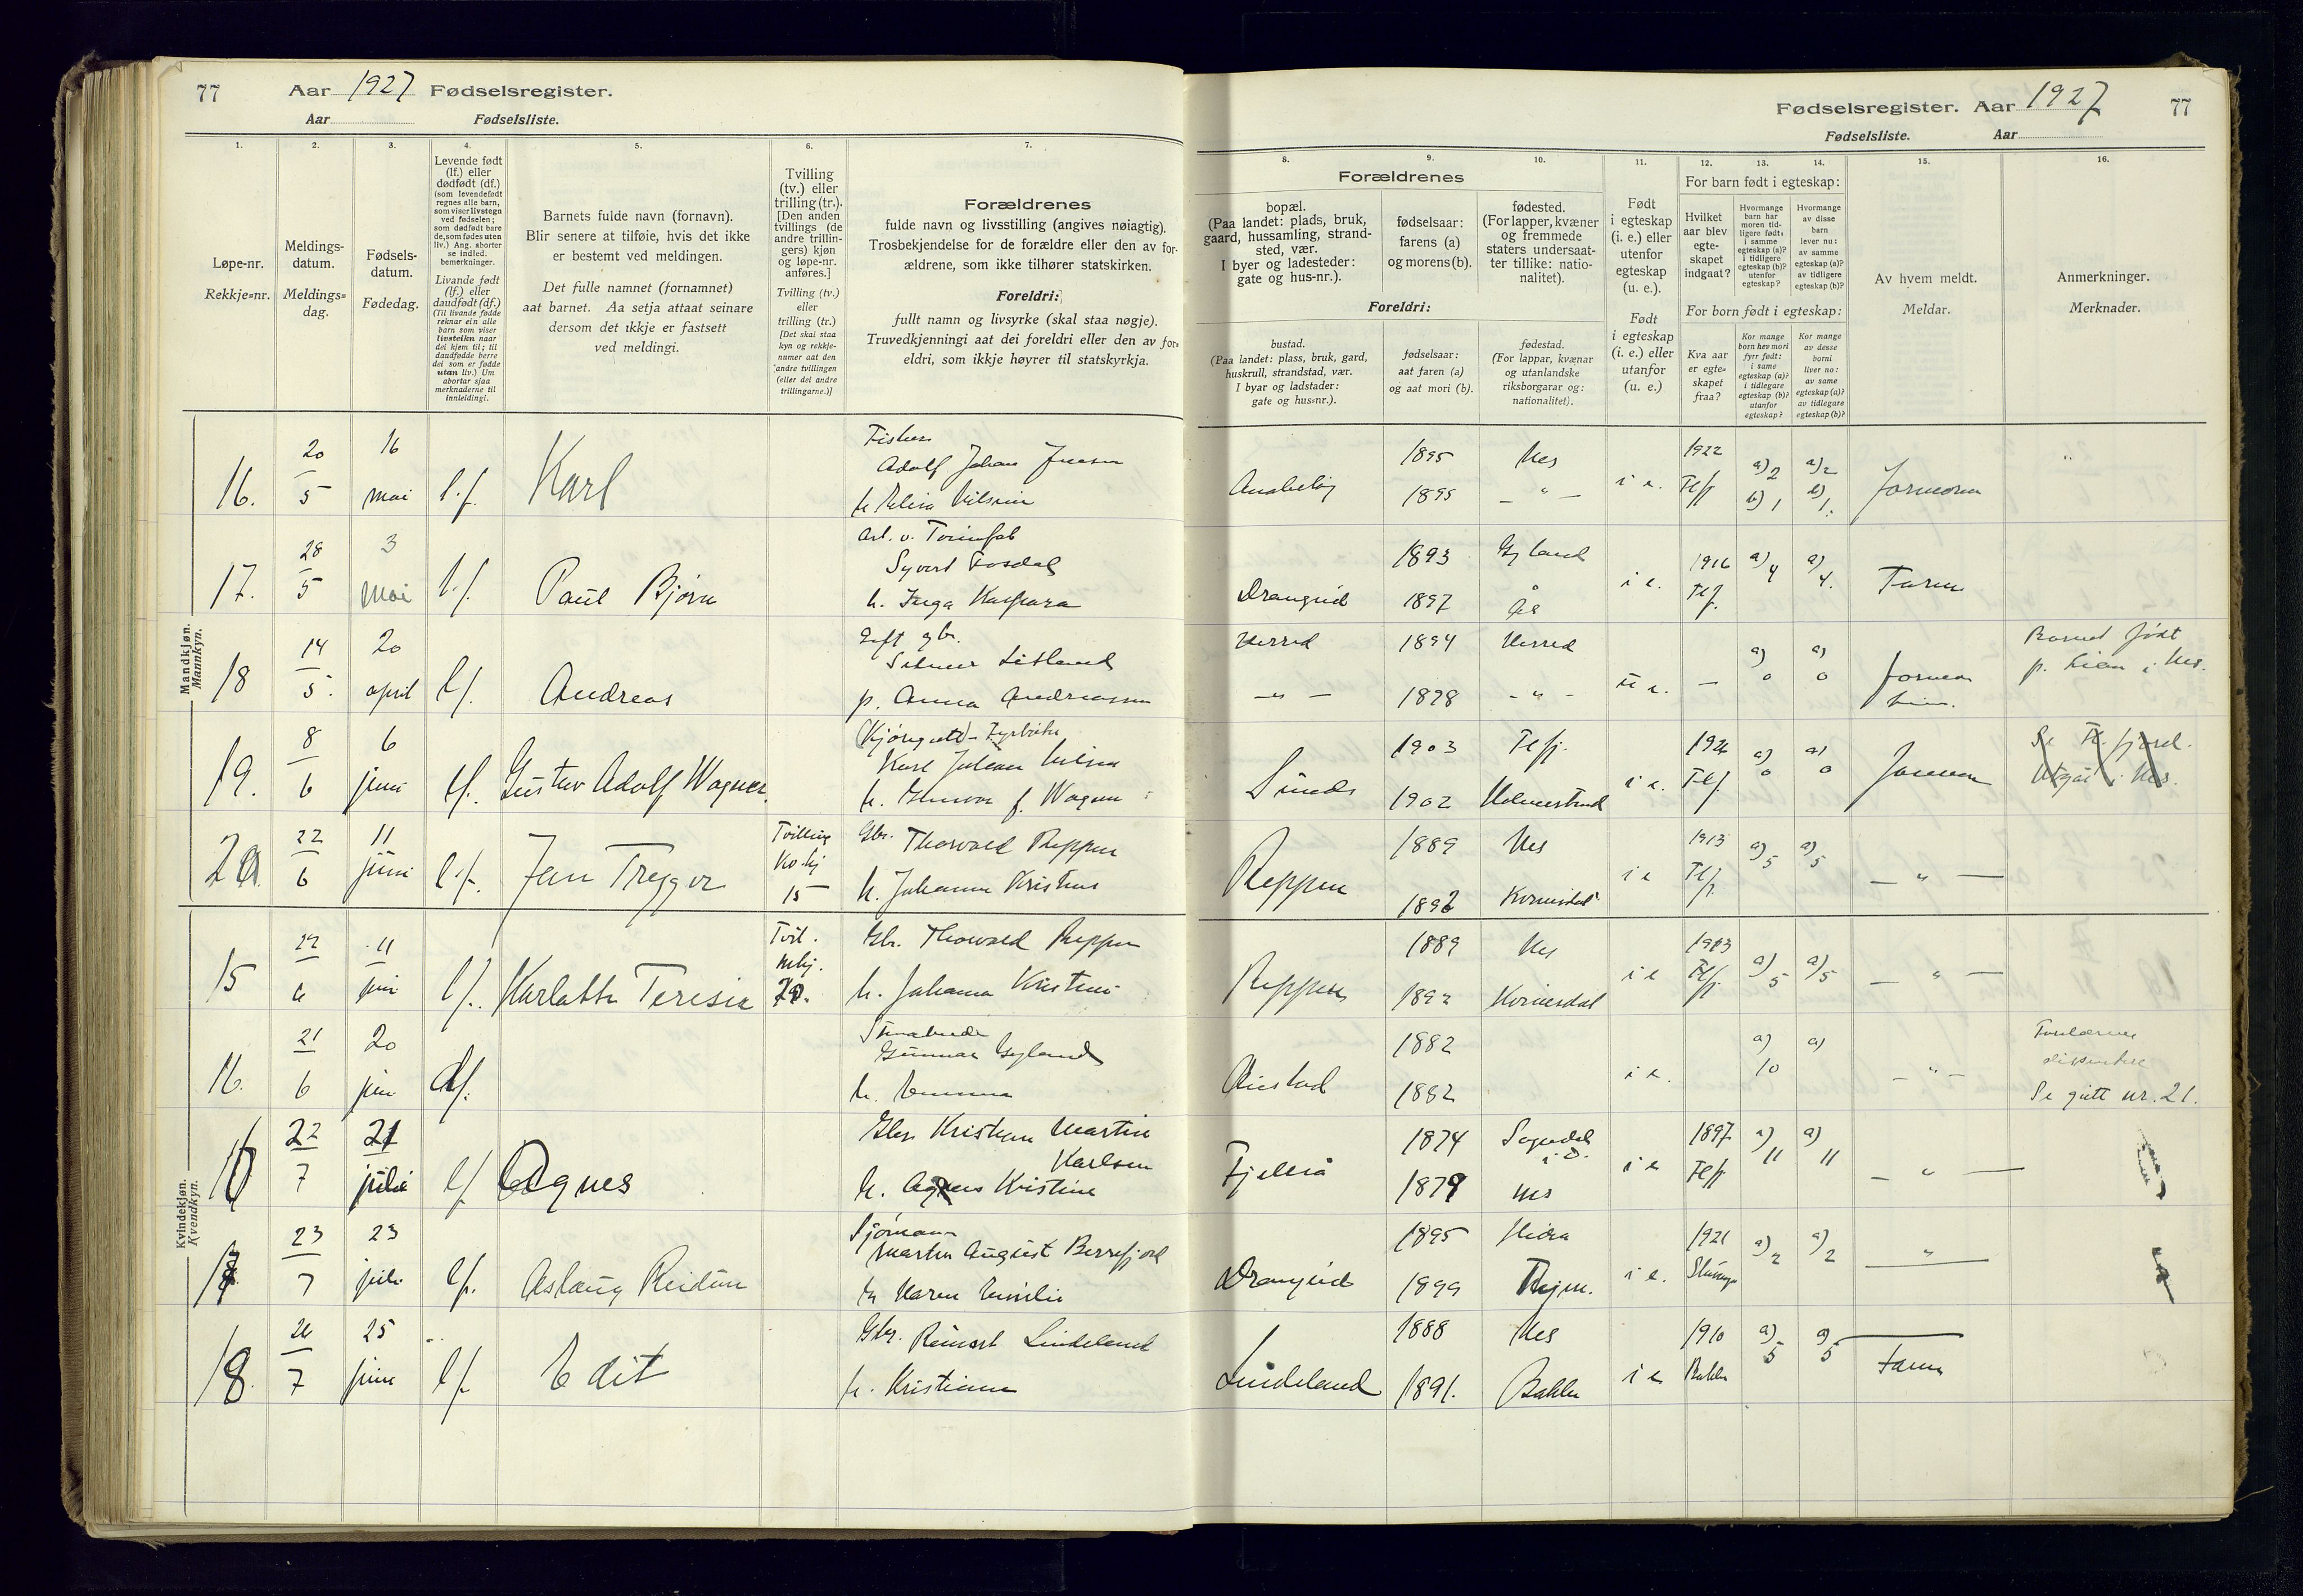 77 Aar 1927 Fødselsregister.
Aar Fødselsliste.
1.
Løpe-nr.
Rekkje=nr.
2.
Meldings-
datum.
Meldings=
dag.
3.
Fødsels-
datum.
Fødedag.
4.
Levende født
(lf.) eller
dødfødt (df.)
(som levendefødt
regnes alle barn,
som viser livstegn
ved fødselen;
som dødfødt bare
de, som fødes uten
liv.) Ang. aborter
se indled.
bemerkninger.
Livande født
(lf.) eller
daudfødt (df.)
(Til livande fødde
reknar ein alle
barn som viser
livsteikn naar
dei kjem til; til
daudfødde berre
dei som er fødde
utan liv.) Um
abortar sjaa
merknaderne til
innleidingi.
5.
Barnets fulde navn (fornavn).
Blir senere at tilføie, hvis det ikke
er bestemt ved meldingen.
Det fulle namnet (fornamnet)
aat barnet. Aa setja attaat seinare
dersom det ikkje er fastsett
ved meldingi.
6.
Tvilling
(tv.) eller
trilling (tr.).
[Den anden
tvillings (de
andre trillin-
gers) kjøn
og løpe-nr.
anføres.]
Tvilling (tv.)
eller
trilling (tr.)
[Det skal staa
kyn og rekkje-
numer aat den
andre tvillingen
(eller dei andre
trillingarne.)]
7.
Forældrenes
fulde navn og livsstilling (angives nøiagtig).
Trosbekjendelse for de forældre eller den av for-
ældrene, som ikke tilhører statskirken.
Foreldri:
fullt namn og livsyrke (skal staa nøgje).
Truvedkjenningi aat dei foreldri eller den av for=
eldri, som ikkje høyrer til statskyrkja.
Mandkjøn.
Mannkyn.
16. 20/5 16 mai l.f. Karl
Fisker
Adolf Johan Jensen
17. 28/5 3 mai l.f. Paul Bjørn
h. Inga Kaspara
18 14/5. 20 april l.f. Andreas
p. Anna Andreassen
19. 8/6 6 juni l.f. Gustav Adolf Wagner.
20. 22/6 11 juni l.f. Jen Trygve
Tvilling
Kv.kj
15
Gbr. Thorvald Reppen
h. Johanna Kristine
Kvindekjøn.
Kvendkyn.
15 22/6 11 juni l.f. Karlotte Teresie
Tvil.
mkj.
20.
Gbr. Thorvald Reppen
h. Johanna Kristine
16. 21/6 20 juni df.
Gunnar Gyland
h. Emma
16 22/7 21 juli l.f. Agnes
Gbr. Kristian Martin
Karlsen
h. Agnes Kristine
17 23/7 23 juli l.f. Aslaug Reidun
Sjømann
Martin August Berrefjord
h. Karen Emilie
18. 26/7 25 juni l.f. Edit
Gbr. Reinert Lindeland
h. Kristiane
Fødselsregister. Aar 1927 77
Fødselsliste. Aar
8.
9.
10.
Forældrenes
bopæl.
(Paa landet: plads, bruk,
gaard, hussamling, strand-
sted, vær.
I byer og ladesteder:
gate og hus-nr.).
fødselsaar:
farens (a)
og morens (b).
fødested.
(For lapper, kvæner
og fremmede
staters undersaat-
ter tillike: natio-
nalitet).
Foreldri:
bustad.
(Paa landet: plass, bruk, gard,
huskrull, strandstad, vær.
I byar og ladstader:
gate og hus=nr.).
fødselsaar:
aat faren (a)
og aat mori (b).
fødestad.
(For lappar, kvænar
og utanlandske
riksborgarar og:
nationalitet).
11.
Født
i egteskap
(i. e.) eller
utenfor
egteskap
(u. e.).
Født
i egteskap
(i. e.) eller
utanfor
(u. e.)
12.
13.
14.
For barn født i egteskap:
Hvilket
aar blev
egte-
skapet
indgaat?
Hvormange
barn har
moren tid-
ligere født:
i samme
egteskap (a)?
i tidligere
egteskap (b)?
utenfor
egteskap?
Hvormange
av disse
barn
lever nu:
av samme
egteskap (a)?
av tidligere
egteskap (b)?
For born født i egteskap:
Kva aar
er egte=
skapet
fraa?
Kor mange
born hev mori
fyrr født:
i same
egteskap (a)?
i tidlegare
egteskap (b)?
utanfor
egteskap?
Kor mange
av desse
borni
liver no:
av same
egteskap (a)?
av tidlegare
egteskap (b)?
15.
Av hvem meldt.
Meldar.
16.
Anmerkninger.
Merknader.
1895 Nes i e. 1922 a) 2 b) 1 a) 2 b) 1. Jormoren
1895 — " —
Drangeid 1893 Gyland i e. 1916 Flf. a) 4 a) 4. Faren
1897 Åa
Herred 1894 Herred u e. — a) 0 a) 0
— " — 1898 — " —
Barnet født
p. Lien i Nes.
Sunde 1903 Flfj. i e. 1926 Flf a) 0 a) 0 Jormoren
1902 Holmestrand
Se Fl.fjord.
Utgår i Nes.
Reppen 1889 Nes i e 1913 Flf. a) 5 a) 5 — " —
1892 Kvinesdal
Reppen 1889 Nes i e 1913 Flf. a) 5 a) 5 — " —
1892 Kvinesdal
1882 i e. a) 10 a) — " —
1882
Forældrene
dissentere
Se gutt nr. 21.
Fjellså 1874 Sogndal i D. i e 1897 Flf a) 11 a) 11 — " —
1879 Nes
Drangeid 1895 Hidra i e. 1921 a) 2 a) 2 "
1899
Lindeland 1888 Nes i e 1910 Bakke a) 5 a) 5 Faren
1891. Bakke